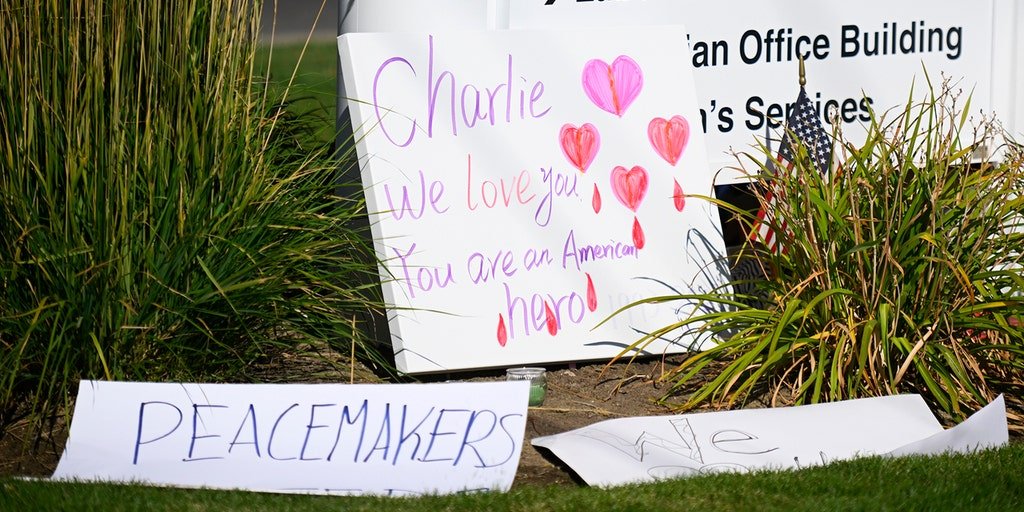 ian Office Building
's Services
Charlie
We love you.
You are an American
hero
PEACEMAKERS
We